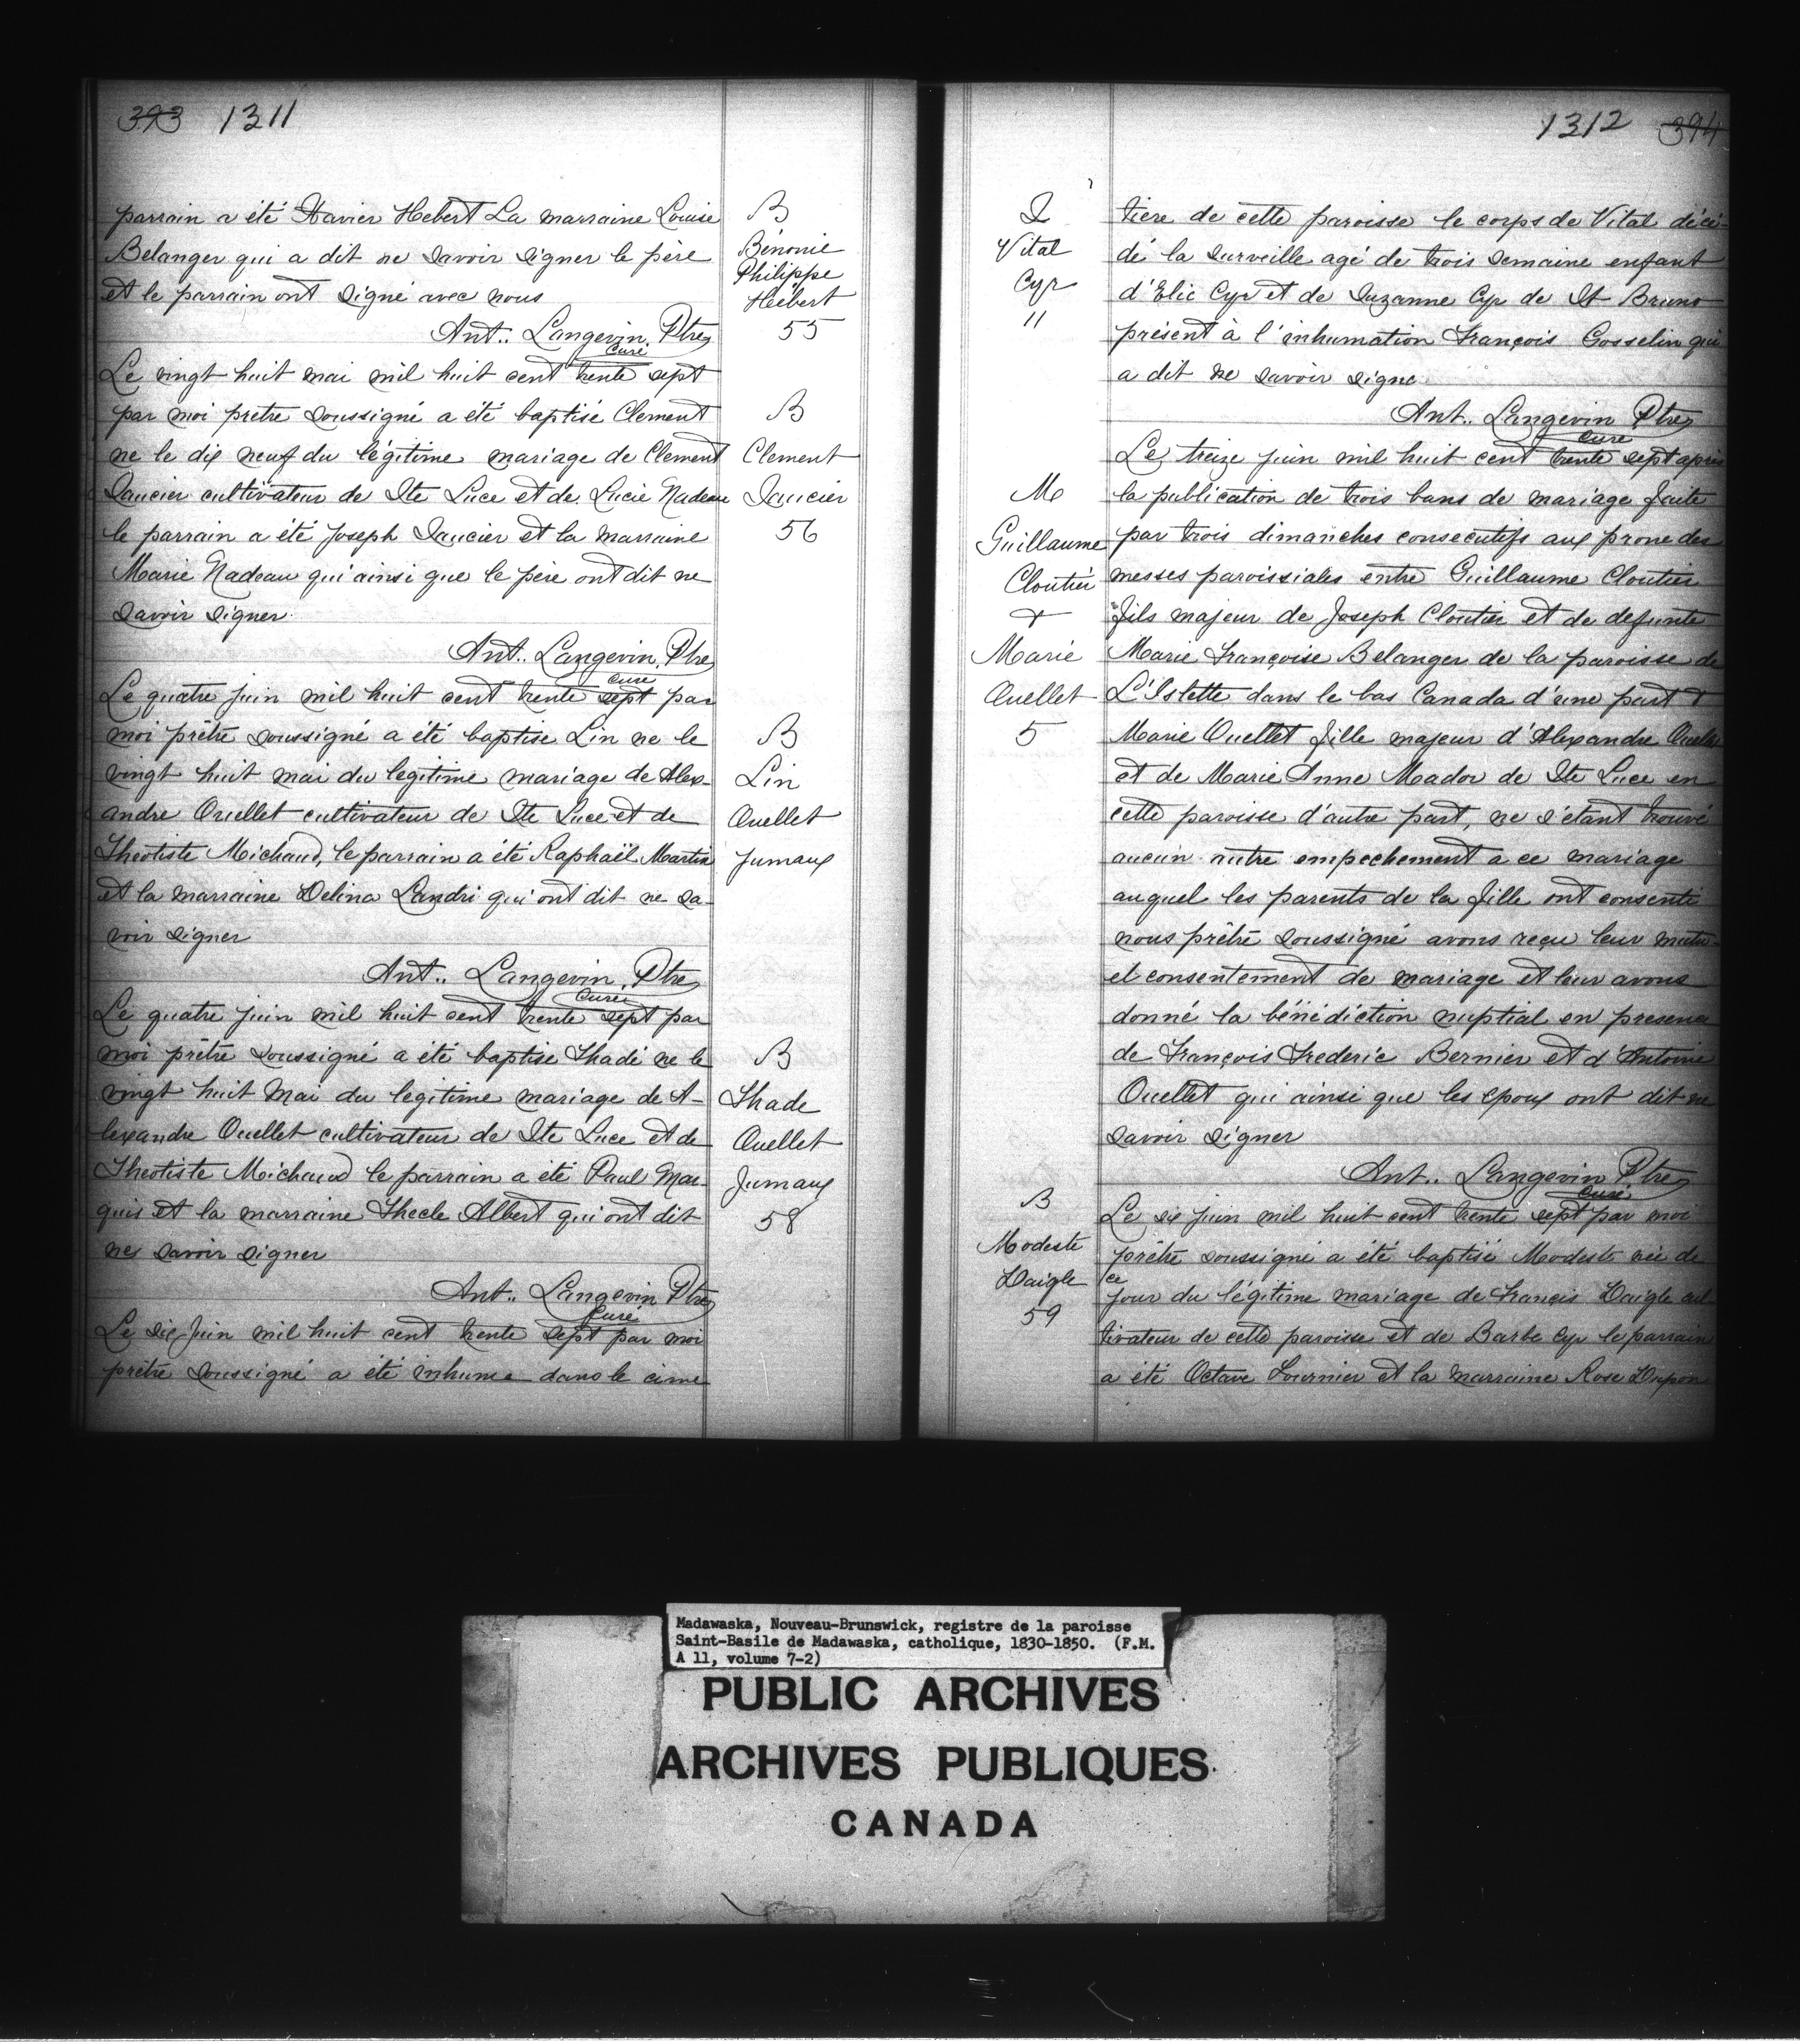 393 1311
parrain a été Xavier Hebert La marraine Louise
Belanger qui a dit ne savoir signer le père
et le parrain ont signé avec nous
Ant.. Langevin. Ptre
Curé
B
Bénonie
Philippe
Hébert
55
Le vingt huit mai mil huit cent trente sept
par moi prêtre soussigné a été baptisé Clement
ne le dix neuf du légitime mariage de Clement
Saucier cultivateur de Ste Luce et de Lucie Nadeau
le parrain a été Joseph Saucier et la marraine
Marie Nadeau qui ainsi que le père ont dit ne
savoir signer
Ant.. Langevin. Ptre
Curé
B
Clement
Saucier
56
Le quatre juin mil huit cent trente sept par
moi prêtre soussigné a été baptise Lin ne le
vingt huit mai du legitime mariage de Alex-
andre Ouellet cultivateur de Ste Luce et de
Theotiste Michaud, le parrain a été Raphaël Martin
et la marraine Delina Landri qui ont dit ne sa-
voir signer
Ant.. Langevin. Ptre
Curé
B
Lin
Ouellet
Jumaux
Le quatre juin mil huit cent trente sept par
moi prêtre soussigné a été baptise Thadé ne le
vingt huit Mai du légitime mariage de A-
lexandre Ouellet cultivateur de Ste Luce et de
Theotiste Michaud le parrain a été Paul Mar-
quis et la marraine Thecle Albert qui ont dit
ne savoir signer
Ant.. Langevin Ptre
Curé
B
Thade
Ouellet
Jumaux
58
Le six Juin mil huit cent trente sept par moi
prêtre soussigné a été inhume dans le cime
1312 394
S
Vital
Cyr
11
tiere de cette paroisse le corps de Vital déce-
dé la surveille agé de trois semaine enfant
d'Elie Cyr et de Suzanne Cyr de St Bruno
présent à l'inhumation François Gosselin qui
a dit ne savoir signe
Ant.. Langevin Ptre
Curé
M
Guillaume
Cloutier
&
Marie
Ouellet
5
Le treize juin mil huit cent trente sept apres
la publication de trois bans de mariage faite
par trois dimanches consecutifs aux prone des
messes paroissiales entre Guillaume Cloutier
fils majeur de Joseph Cloutier et de defunte
Marie Françoise Belanger de la paroisse de
L'Islette dans le bas Canada d'une part &
Marie Ouellet fille majeur d'Alexandre Ouellet
et de Marie Anne Mador de Ste Luce en
cette paroisse d'autre part, ne s'étant trouvé
aucun autre empechement a ce mariage
auquel les parents de la fille ont consenti
nous prêtre soussigné avons reçu leur mutu-
el consentement de mariage et leur avons
donné la bénédiction nuptial en presence
de François Frederic Bernier et d'Antoine
Ouellet qui ainsi que les epoux ont dit ne
savoir signer
Ant.. Langevin Ptre
Curé
B
Modeste
Daigle
59
Le six juin mil huit cent trente sept par moi
prêtre soussigné a été baptisé Modeste née de
ce
jour du légitime mariage de Françis Daigle cul
tivateur de cette paroisse et de Barbe Cyr le parrain
a été Octave Fournier et la marraine Rose Dupon
Madawaska, Nouveau-Brunswick, registre de la paroisse
Saint-Basile de Madawaska, catholique, 1830-1850. (F.M.
A 11, volume 7-2)
PUBLIC ARCHIVES
ARCHIVES PUBLIQUES
CANADA